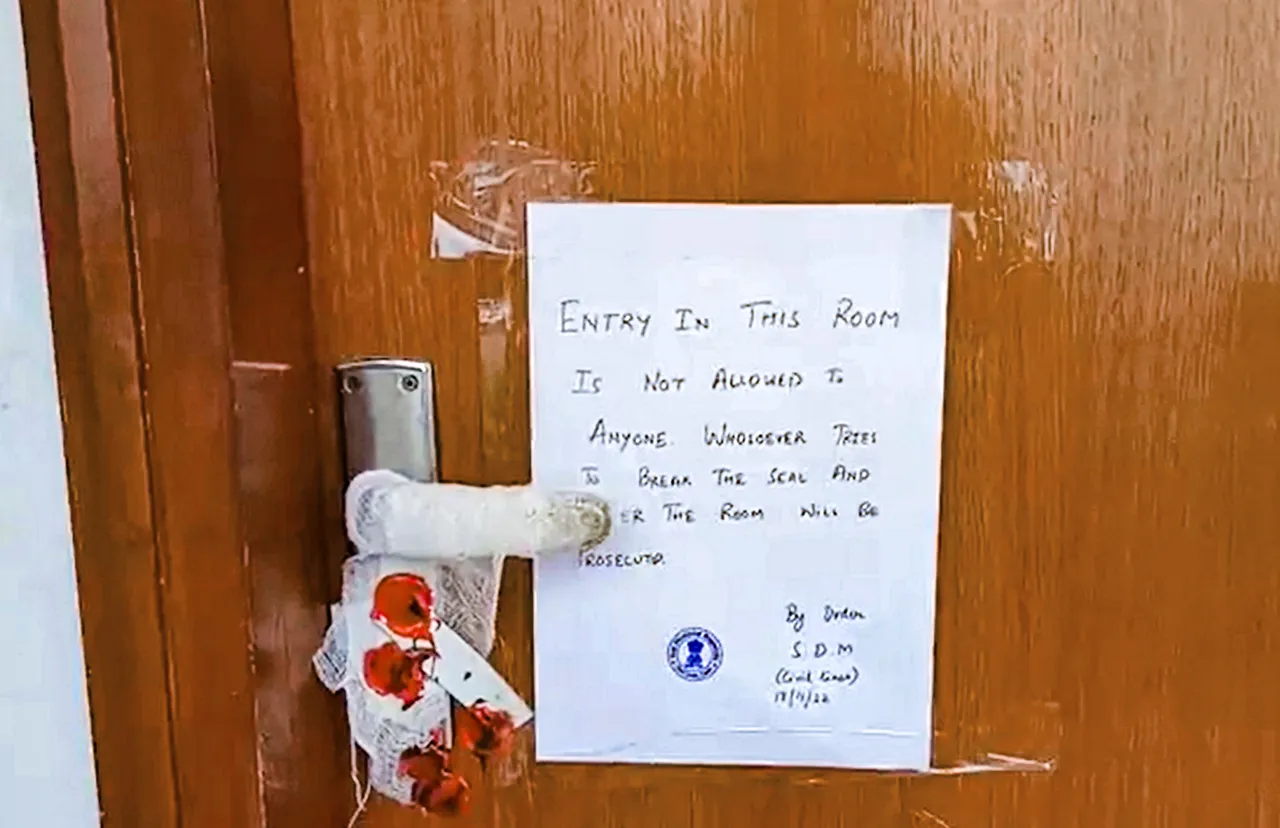 ENTRY IN THIS ROOM
IS NOT ALLOWED TO
ANYONE. WHOSOEVER TRIES
TO BREAK THE SEAL AND
ER THE ROOM WILL BE
PROSECUTD.
By Order
S.D.M
(Civil Lines)